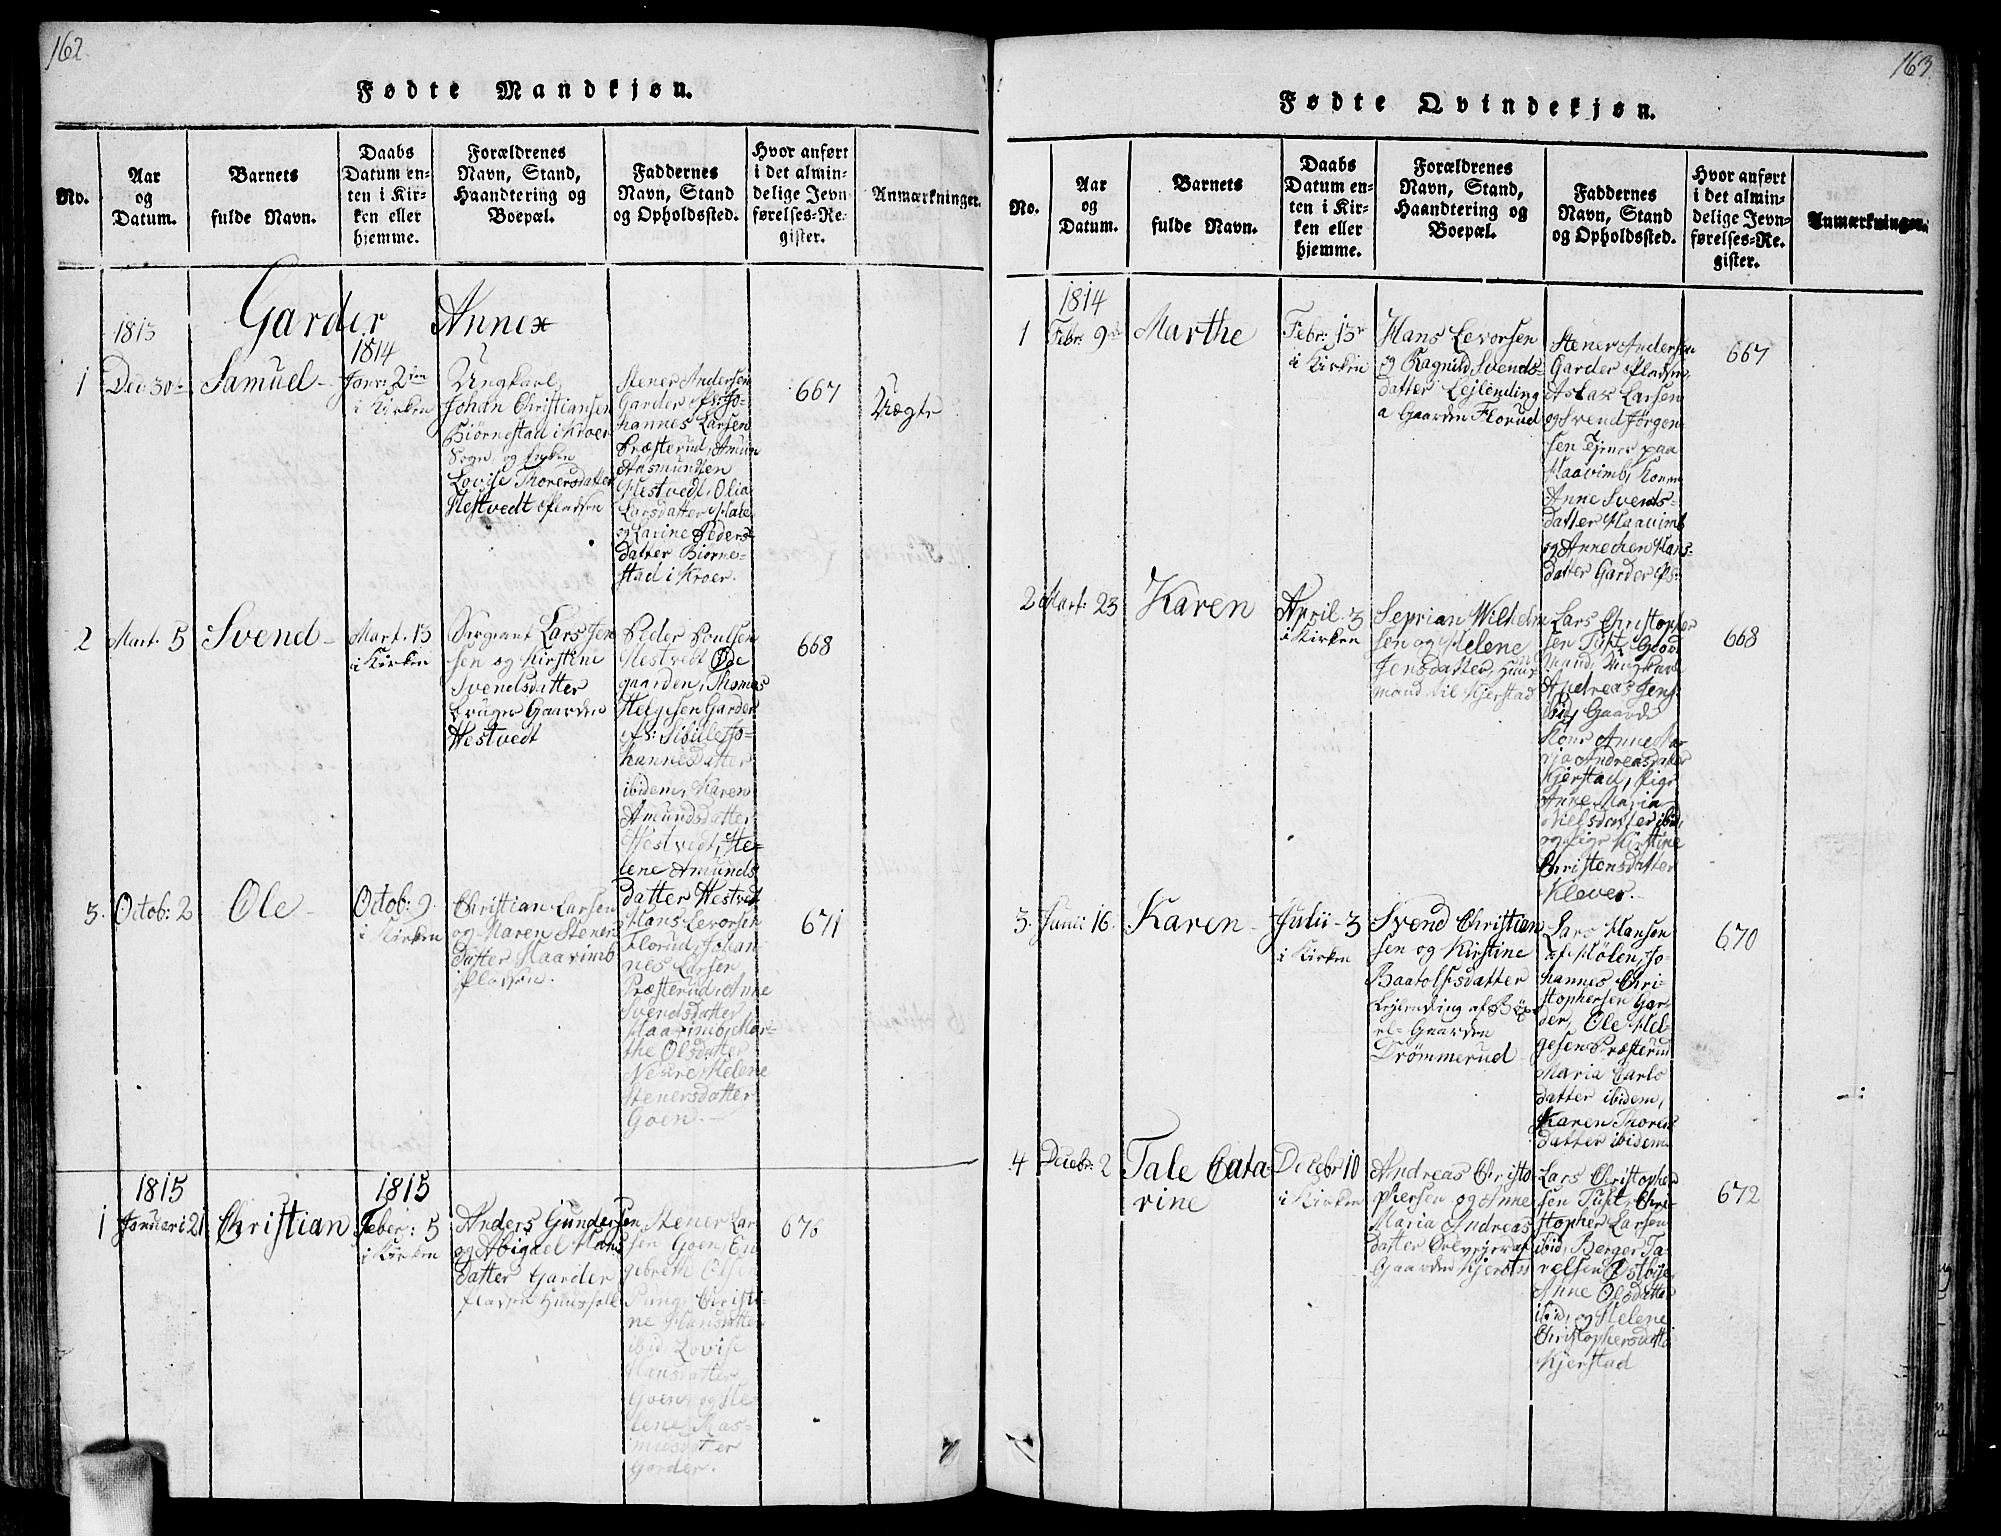 162.
Fødte Mandkjøn.
No.
Aar
og
Datum.
Barnets
fulde Navn.
Daabs
Datum en-
ten i Kir-
ken eller
hjemme.
Forældrenes
Navn, Stand,
Haandtering og
Boepæl.
Faddernes
Navn, Stand
og Opholdssted.
Hvor anført
i det almin-
delige Jevn-
førelses-Re-
gister.
Anmærkninger.
Garder Annex
1813
1
Dec: 30
Samuel
1814
Janr: 2
i Kirken
Ungkarl
Johan Christiansen
Biørnestad i Kroer
Sogn og
Lovise Thoresdatter
Hestvedt Pladsen
Stener Andersen
Garder Jo-
hannes Larsen
Præsterud, Amun
Aasmundsen
Hestvedt, Olia
Larsdatter
og Karine Peders-
datter Biørne-
stad i Kroer.
667
Uægte
2
Mart. 5
Svend
Mart. 13
i Kirken
Sergeant Lars
sen og Kirstine
Svendsdatter
bruger Gaarden
Hestvedt
Peder Poulsen
Hestvedt Øde
gaarden, Thomas
Helgesen Garder
Sibille Jo-
hannesdatter
ibidem, Karen
Amundsdatter
Hestvedt, He-
lene Amunds
datter Hestvedt
668
3.
Octob: 2
Ole
Octob: 9.
i Kirken
Christian Larsen
og Maren Steners
datter Haavimb
Pladsen.
Hans Levorsen
Florud, Johan
nes Larsen
Præsterud, Anne
Svendsdatter
Haavimb, Mar-
the Olsdatter
Helene
Stenersdatter
Goen.
671
1815
1
Januari 21
Christian
1815
Feber: 5
i Kirken
Anders Gundersen
og Abigael Hans
datter Garder
Pladsen
Stener Lar
sen Goen, En
gebreth Olsen
Pung, Christi-
ne Hansdatter
ibid Lovise
Hansdatter
Goen, og He-
lene Ras-
musdatter
Garder.
673
163.
Fødte Qvindekjøn.
No.
Aar
og
Datum.
Barnets
fulde Navn.
Daabs
Datum en-
ten i Kir-
ken eller
hjemme.
Forældrenes
Navn, Stand,
Haandtering og
Boepæl.
Faddernes
Navn, Stand
og Opholdssted.
Hvor anført
i det almin-
delige Jevn-
førelses-Re-
gister.
Anmærkninger.
1814
1
Febr: 9
Marthe
Febr: 13
i Kirken
Hans Levorsen
og Ragnild Svends-
datter Lejlending
a Gaarden Florud
Stener Andersen
Garder Pladsen,
Aslak Larsen
og Svend Jørgen
sen Tjener paa
Haavimb, Konen
Anne Svends-
datter Haavimb
og Annechen Hans-
datter Garder
667
2
Mart: 23
Karen
April 3
i Kirken
Seprian Wilhelm
sen og Helene
Jensdatter, Huus
mand til Kjerstad
Lars Christopher
sen Tust, Gaard
Mand, Ungkarl
Andreas Jens:
ibid, Gaard
Kone Anne Ma
rja Andreasdatter
Kjerstad, Pige
Anne Maria
Nielsdatter ibid,
og Pige Kirstine
Christensdatter
Klever.
668
3.
Junii 16.
Karen
Julii 3
i Kirken
Svend Christian
sen og Kirstine
Baatolfsdatter
Lejlending af
Gaarden
Drömmerud
Lars Hansen
af Mølen, Jo-
hannes Chri-
stophersen Gar-
der, Ole Hel-
gesen Præsterud
Maria Carls
datter ibidem,
Karen Thoren
datter ibidem
670
4
Decebr: 2
Tale Cata
rine
Decebr 10
i Kirken
Andreas Christo
phersen og Anne
Maria Andreas
datter
Gaarden Kjerstad
Lars Christopher
sen Tust, Chri-
stopher Larsen
ibid, Berger Ta-
relsen Østbye,
Anne Olsdatter
ibid, og Helene
Christophersdatter
Kjerstad
672